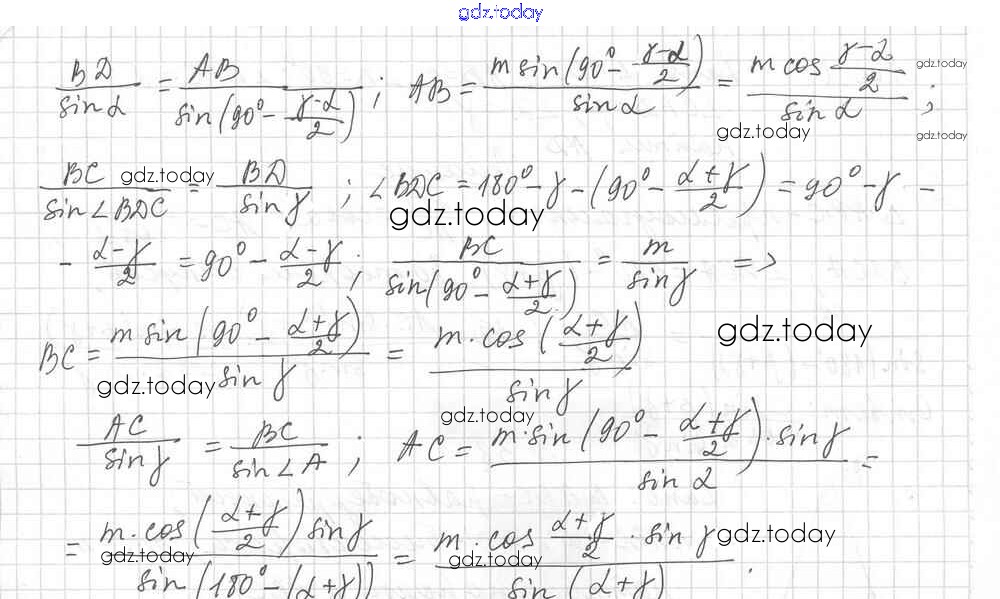 gdz.today
BD/sin α = AB/sin(90° - (γ-α)/2) ; AB = m sin(90° - (γ-α)/2)/sin α = m cos (γ-α)/2 / sin α ;
gdz.today
gdz.today
gdz.today
BC/sin∠BDC = BD/sin γ ; ∠BDC = 180° - γ - (90° - (α+γ)/2) = 90° - γ -
gdz.today
gdz.today
- (α-γ)/2 = 90° - (α-γ)/2 ; BC/sin(90° - (α+γ)/2) = m/sin γ =>
BC = m sin(90° - (α+γ)/2)/sin γ = m·cos((α+γ)/2)/sin γ
gdz.today
gdz.today
AC/sin γ = BC/sin∠A ; AC = m·sin(90° - (α+γ)/2)·sin γ/sin α =
gdz.today
= m·cos((α+γ)/2) sin γ/sin(180° - (α+γ)) = m·cos (α+γ)/2 · sin γ/sin(α+γ) .
gdz.today
gdz.today
gdz.today